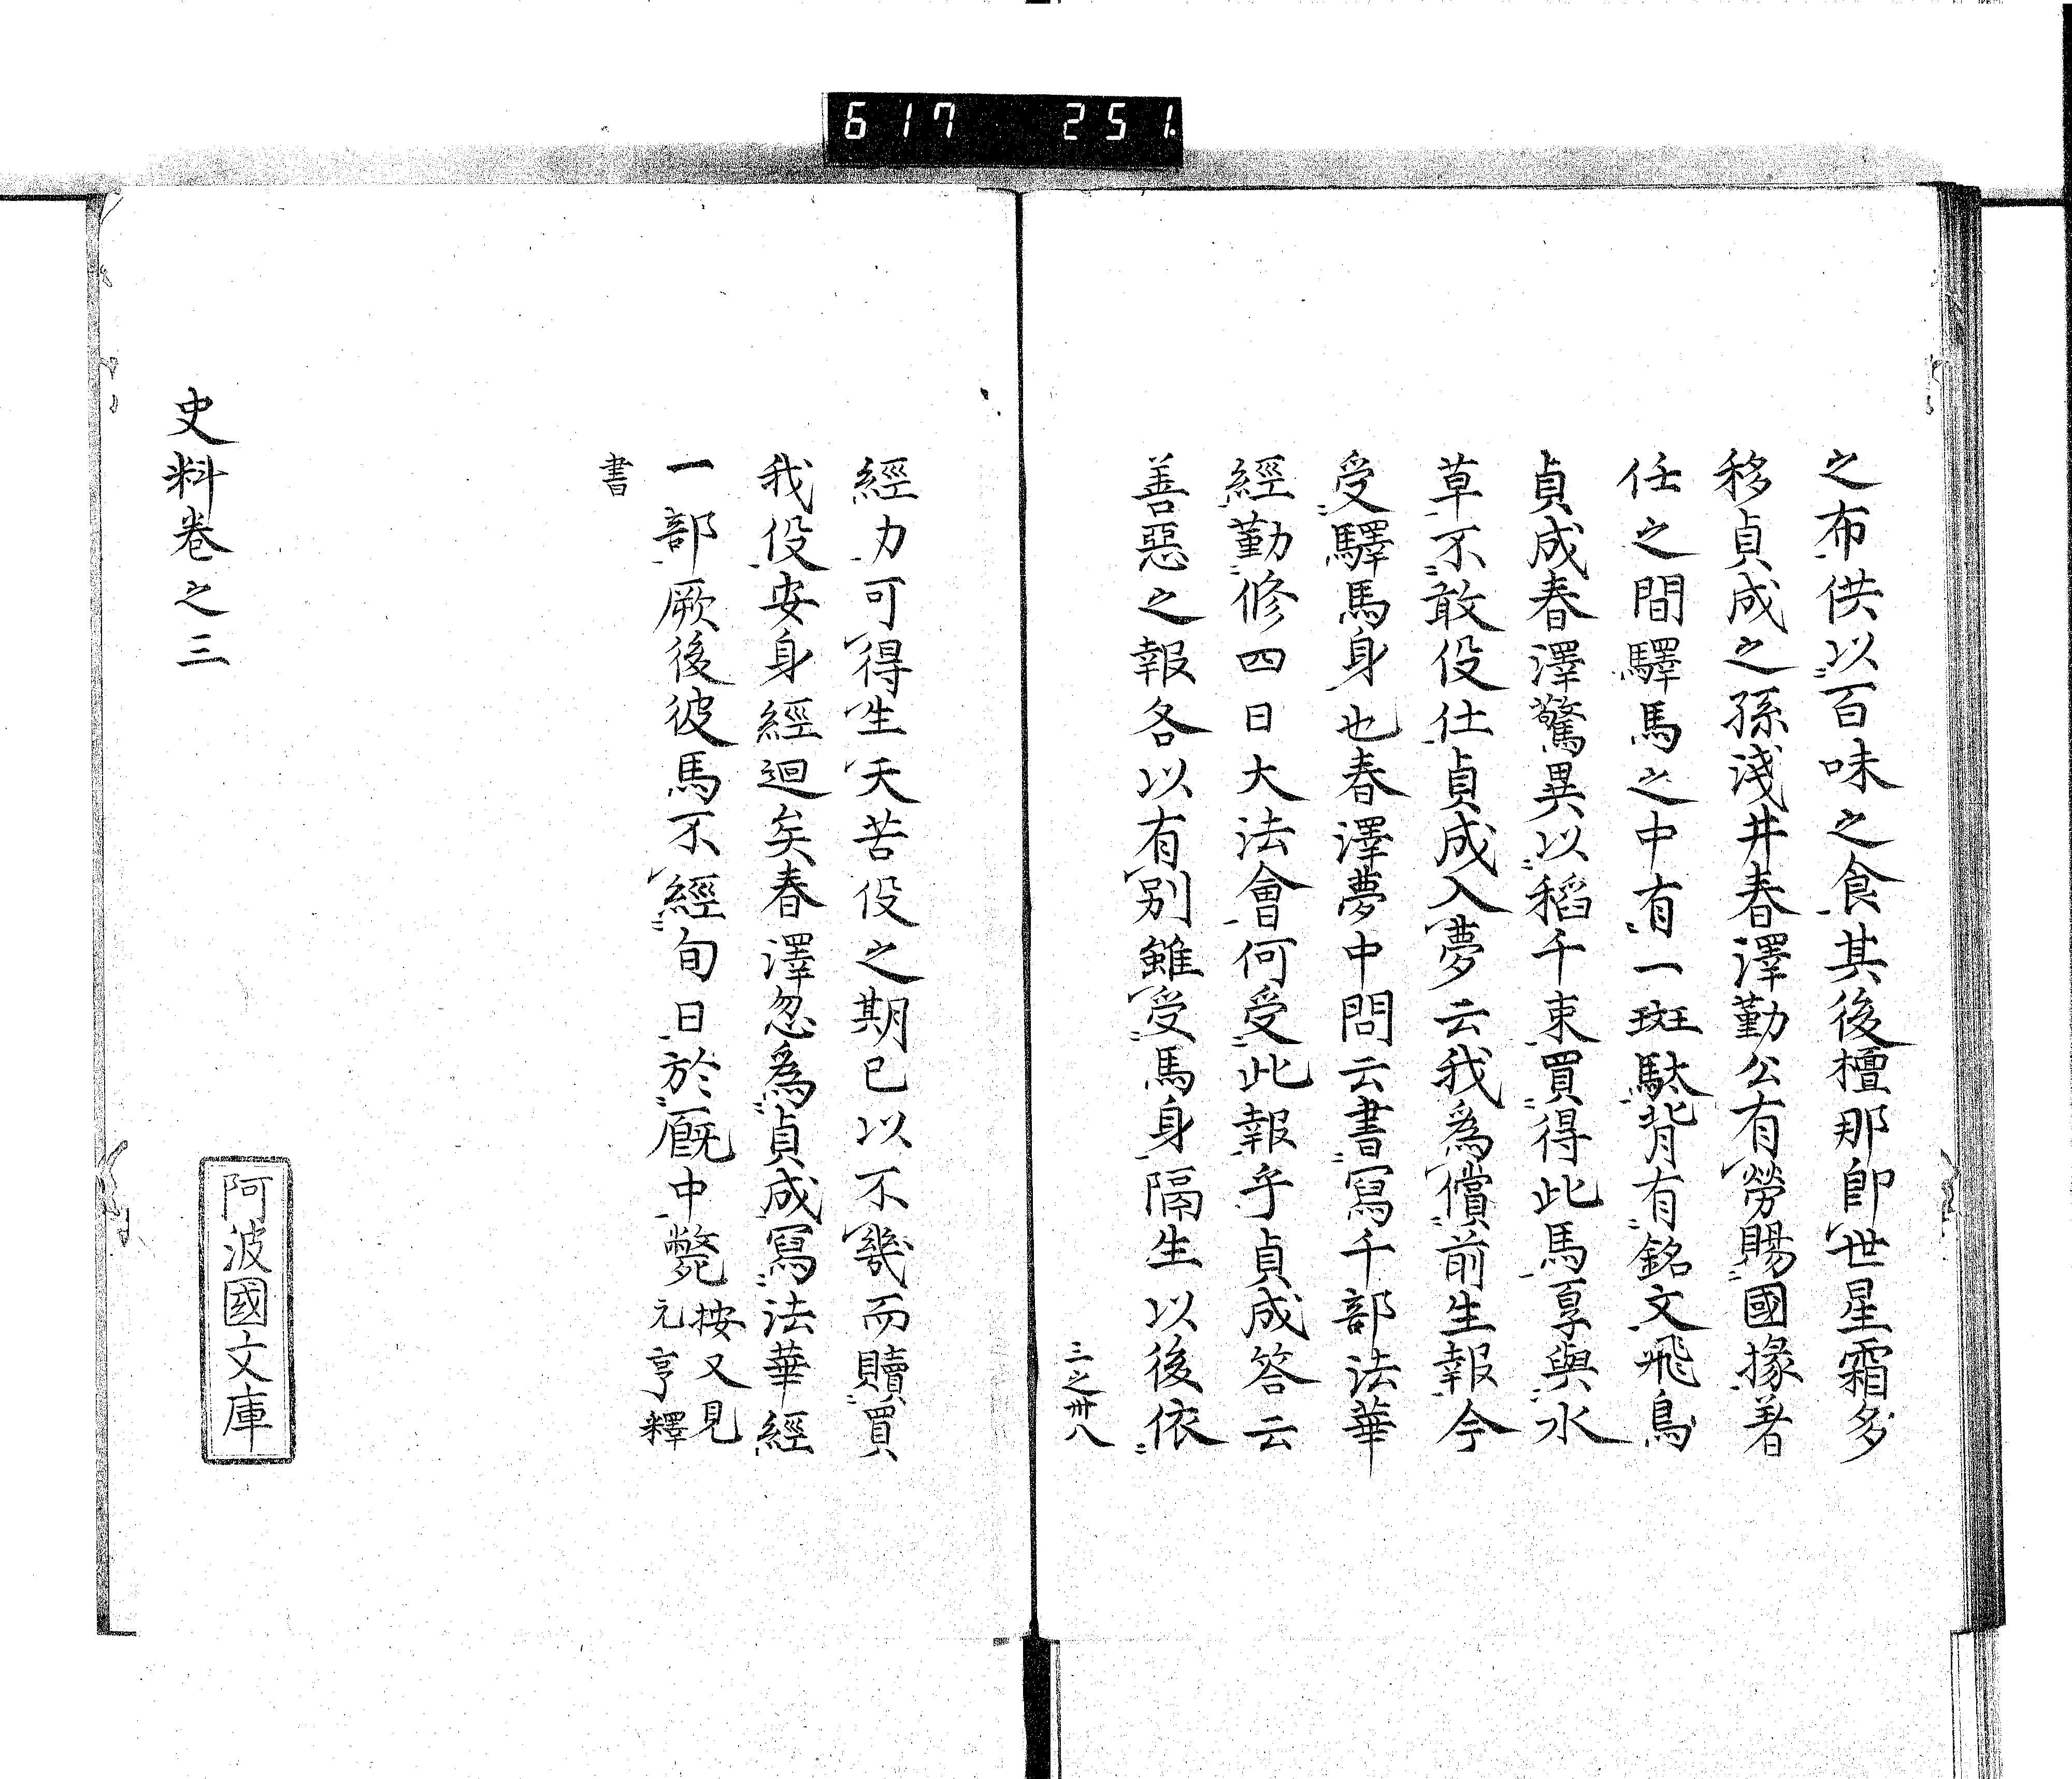 617 251.
之布供以百味之食其後檀那卽世星霜多
移貞成之孫淺井春澤勤公有勞賜國掾著
任之間驛馬之中有一斑駄背有銘文飛鳥
貞成春澤驚異以稻千束買得此馬享與水
草不敢役仕貞成入夢云我爲償前生報今
受驛馬身也春澤夢中問云書寫千部法華
經勤修四日大法會何受此報乎貞成答云
善惡之報各以有別雖受馬身隔生以後依
三之卅八
經力可得生天苦役之期已以不幾而贖買
我役安身經迴矣春澤忽爲貞成寫法華經
一部厥後彼馬不經旬日於廐中斃按又見
元亨釋
書
史料卷之三
阿波國文庫